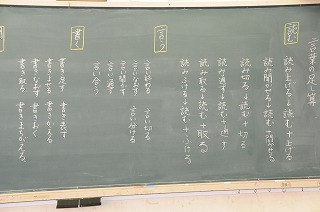 言葉の足し算
読む
読み上げる→読む+上げる
読み聞かせる→読む+聞かせる
読み切る→読む+切る
読み通す→読む+通す
読み取る→読む+取る
読みふける→読む+ふける
言う
言い始める 言い切る
言い返す
言い聞かす 言い分ける
言い過ぎ
言い合う
書く
書き出す 書き表す
書き写す 書きかえる
書きなおす 書きおく
書き取る 書きまちがえる